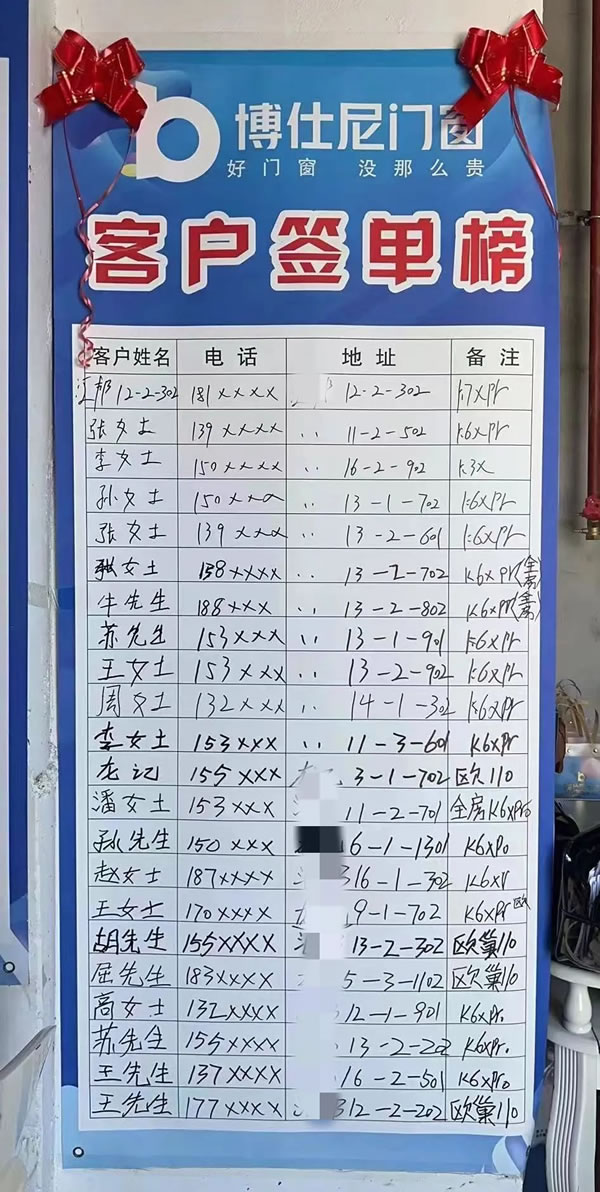 博仕尼门窗
好门窗 没那么贵
客户签单榜
客户姓名 电话 地址 备注
12-2-302 181xxxx 12-2-302 k7xpr
张女士 139xxxx 〃 11-2-502 k6xpr
李女士 150xxxx 〃 16-2-902 k3x
孙女士 150xxx 〃 13-1-702 k6xpr
张女士 139xxx 〃 13-2-601 k6xpr
张女士 138xxxx 〃 13-2-702 k6xpr(全房)
牛先生 188xxx 〃 13-2-802 k6xpr(全房)
苏先生 153xxx 〃 13-1-901 k6xpr
王女士 153xxx 〃 13-2-902 k6xpr
周女士 132xxx 〃 14-1-302 k6xpr
李女士 153xxx 〃 11-3-601 k6xpr
龙记 155xxx 3-1-702 欧110
潘女士 153xxx 11-2-701 全房K6xpro
孙先生 150xxx 6-1-1301 k6xpo
赵女士 187xxxx 16-1-302 k6xpr
王女士 170xxxx 9-1-702 k6xpr欧
胡先生 155xxxx 13-2-302 欧巢110
屈先生 183xxxx 5-3-1102 欧巢110
高女士 132xxxx 12-1-901 k6xpr.
苏先生 155xxxx 13-2-202 k6xpr.
王先生 137xxxx 16-2-501 k6xpro
王先生 177xxxx 12-2-202 欧巢110